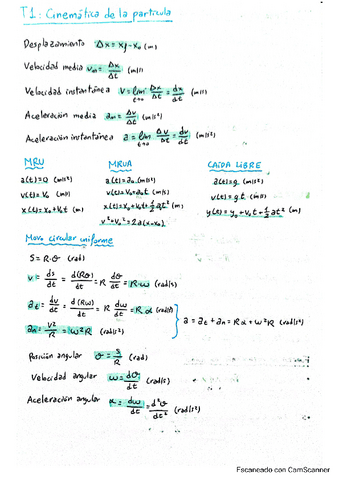 T1: Cinemática de la partícula
Desplazamiento Δx = xf - x₀ (m)
Velocidad media vm = Δx/Δt (m/s)
Velocidad instantánea v = lim t→0 Δx/Δt = dx/dt (m/s)
Aceleración media am = Δv/Δt (m/s²)
Aceleración instantánea a = lim t→0 Δv/Δt = dv/dt (m/s²)
MRU MRUA CAÍDA LIBRE
a(t) = 0 (m/s²) a(t) = a₀ (m/s²) a(t) = g (m/s²)
v(t) = v₀ (m/s) v(t) = v₀ + a₀t (m/s) v(t) = gt (m/s)
x(t) = x₀ + v₀t (m) x(t) = x₀ + v₀t + ½at² (m) y(t) = y₀ + v₀t + ½at² (m)
v² - v₀² = 2a(x - x₀)
Movo circular uniforme
S = R·θ (rad)
v = ds/dt = d(Rθ)/dt = R dθ/dt = R·ω (rad/s)
at = dv/dt = d(Rω)/dt = R dω/dt = Rα (rad/s²)
a = at + an = Rα + ω²R (rad/s²)
an = v²/R = ω²R (rad/s²)
Posición angular θ = s/R (rad)
Velocidad angular ω = dθ/dt (rad/s)
Aceleración angular α = dω/dt = d²θ/dt² (rad/s²)
Escaneado con CamScanner